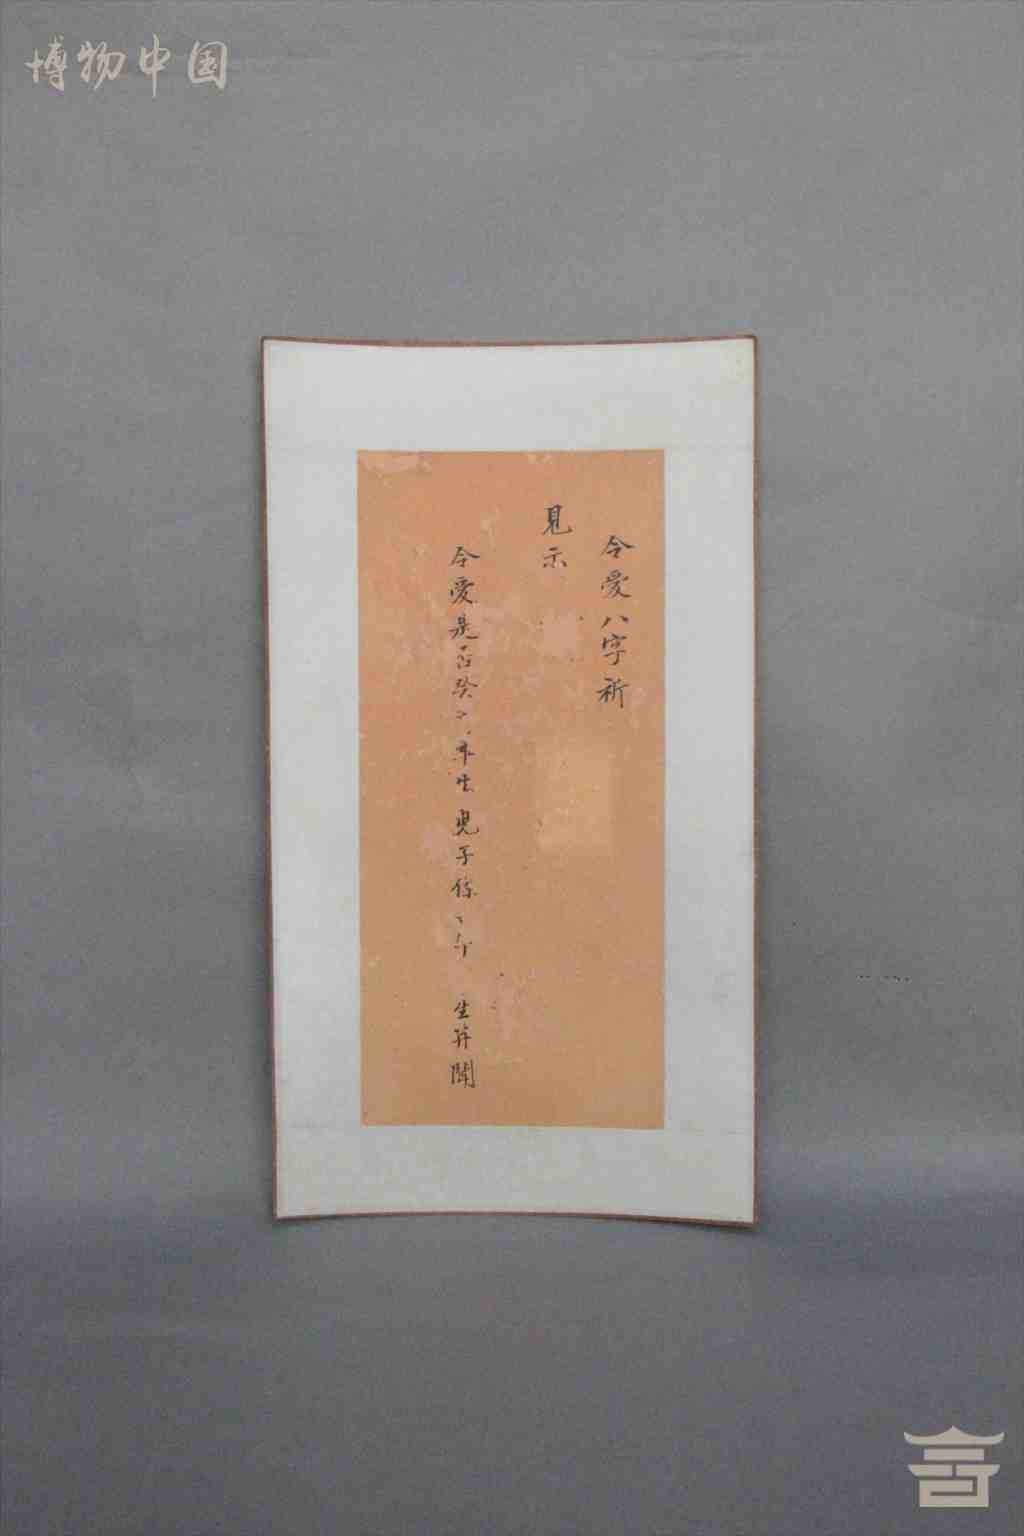 博物中国
令愛八字祈
見示
令愛是否癸 年生兒子係 年 生并聞